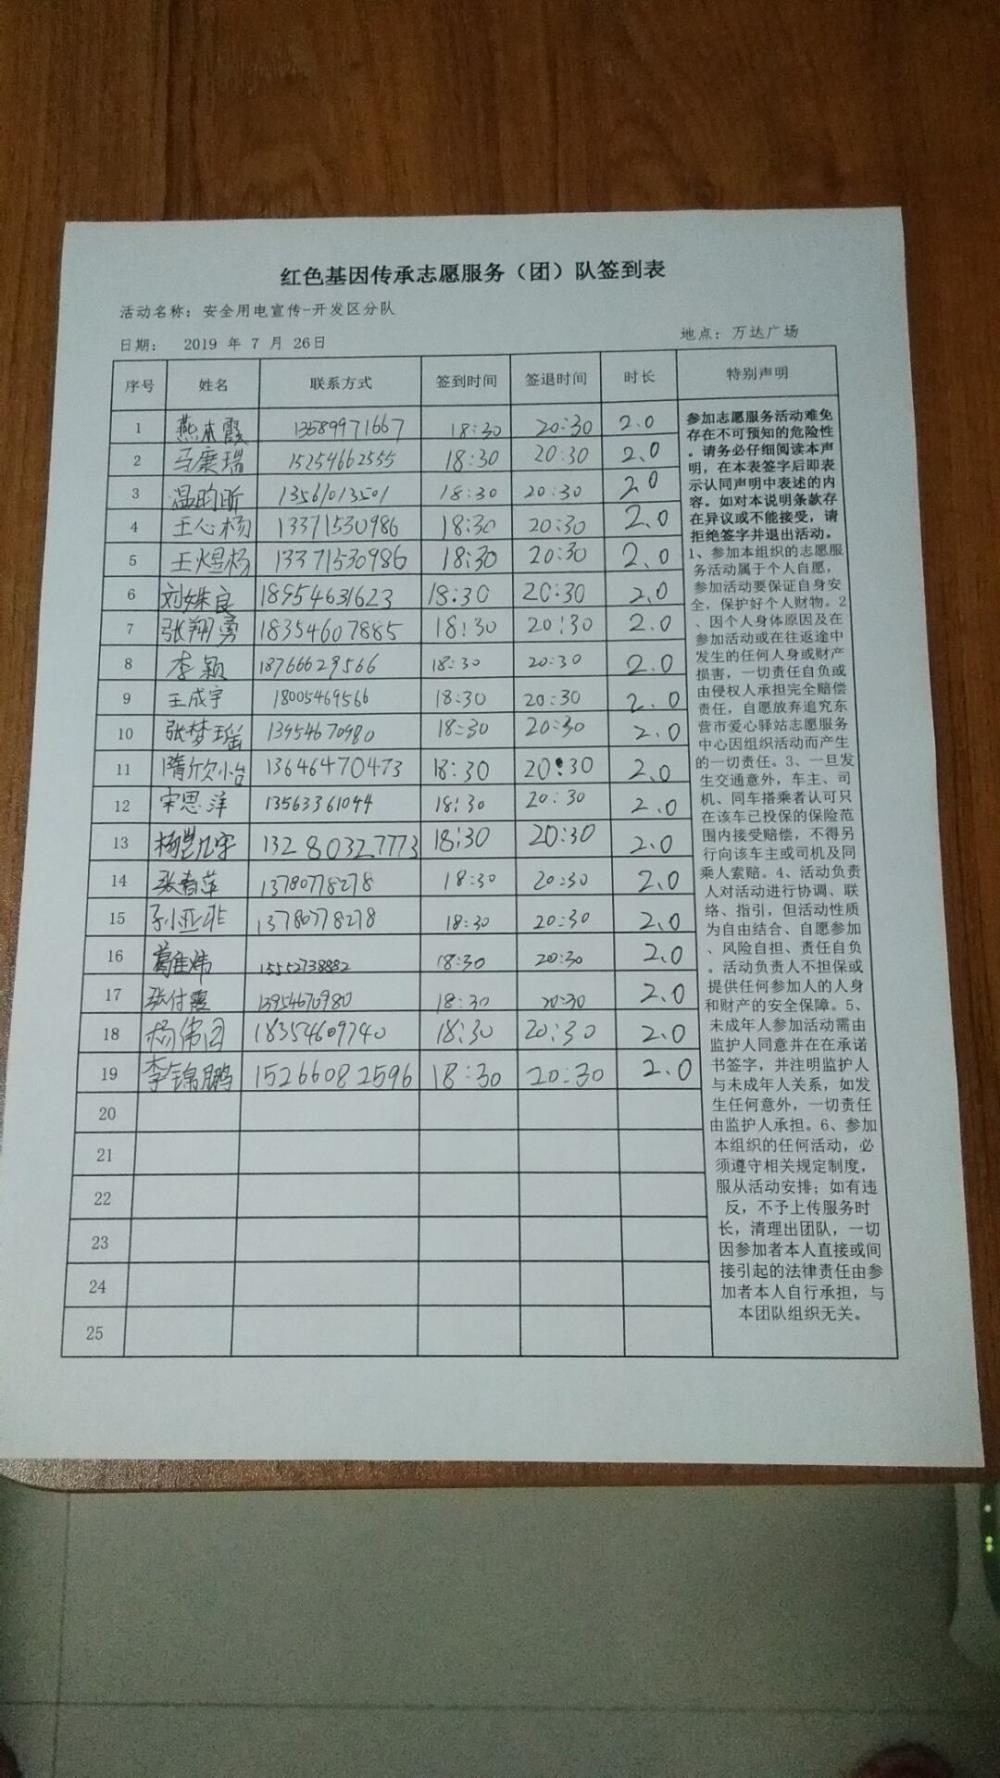 红色基因传承志愿服务（团）队签到表
活动名称：安全用电宣传-开发区分队
日期： 2019 年 7 月 26日 地点：万达广场
序号 姓名 联系方式 签到时间 签退时间 时长 特别声明
1 燕本霞 13589971667 18:30 20:30 2.0
2 马赓瑞 15254662555 18:30 20:30 2.0
3 温昀昕 13561013501 18:30 20:30 2.0
4 王心杨 13371530986 18:30 20:30 2.0
5 王煜杨 13371530986 18:30 20:30 2.0
6 刘姝良 18954631623 18:30 20:30 2.0
7 张翔勇 18354607885 18:30 20:30 2.0
8 李颖 18766629566 18:30 20:30 2.0
9 王成宇 18005469566 18:30 20:30 2.0
10 张梦瑶 13954670980 18:30 20:30 2.0
11 隋欣怡 13646470473 18:30 20:30 2.0
12 宋思洋 13563361044 18:30 20:30 2.0
13 杨凯宇 13280327773 18:30 20:30 2.0
14 张春萍 13780778278 18:30 20:30 2.0
15 孙亚非 13780778278 18:30 20:30 2.0
16 葛佳炜 15552738882 18:30 20:30 2.0
17 张付霞 13954670980 18:30 20:30 2.0
18 杨伟国 18354609740 18:30 20:30 2.0
19 李锦鹏 15266082596 18:30 20:30 2.0
20
21
22
23
24
25
参加志愿服务活动难免
存在不可预知的危险性
。请务必仔细阅读本声
明，在本表签字后即表
示认同声明中表述的内
容。如对本说明条款存
在异议或不能接受，请
拒绝签字并退出活动。
1、参加本组织的志愿服
务活动属于个人自愿，
参加活动要保证自身安
全，保护好个人财物。2
、因个人身体原因及在
参加活动或在往返途中
发生的任何人身或财产
损害，一切责任自负或
由侵权人承担完全赔偿
责任，自愿放弃追究东
营市爱心驿站志愿服务
中心因组织活动而产生
的一切责任。3、一旦发
生交通意外，车主、司
机、同车搭乘者认可只
在该车已投保的保险范
围内接受赔偿，不得另
行向该车主或司机及同
乘人索赔。4、活动负责
人对活动进行协调、联
络、指引，但活动性质
为自由结合、自愿参加
、风险自担、责任自负
。活动负责人不担保或
提供任何参加人的人身
和财产的安全保障。5、
未成年人参加活动需由
监护人同意并在在承诺
书签字，并注明监护人
与未成年人关系，如发
生任何意外，一切责任
由监护人承担。6、参加
本组织的任何活动，必
须遵守相关规定制度，
服从活动安排；如有违
反，不予上传服务时
长，清理出团队，一切
因参加者本人直接或间
接引起的法律责任由参
加者本人自行承担，与
本团队组织无关。